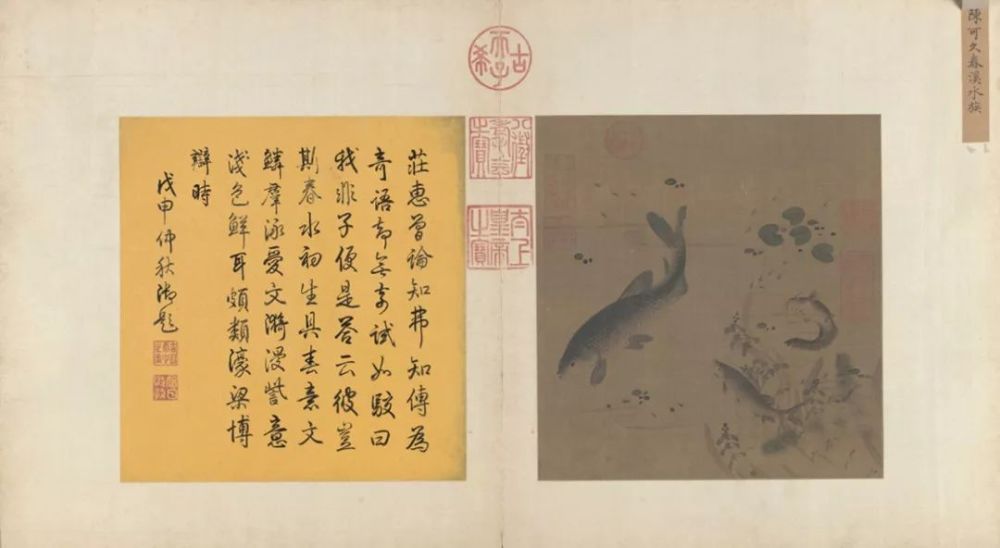 陳可久春溪水族
古希天子
八徵耄念之寶
太上皇帝之寶
莊惠曾論知弗知傳為
奇語却無奇試如駁曰
我非子便是答云彼豈
斯春水初生具春意文
鱗羣泳愛文漪漫訾意
淺色鮮耳頗類濠梁博
辯時
戊申仲秋御題